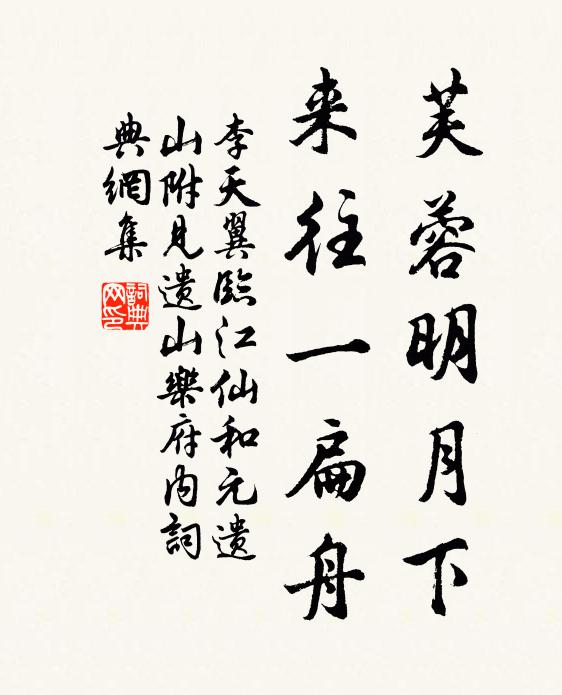 芙蓉明月下
来往一扁舟
李天翼臨江仙和元遺
山附見遺山樂府内詞
典網集
詞典网印